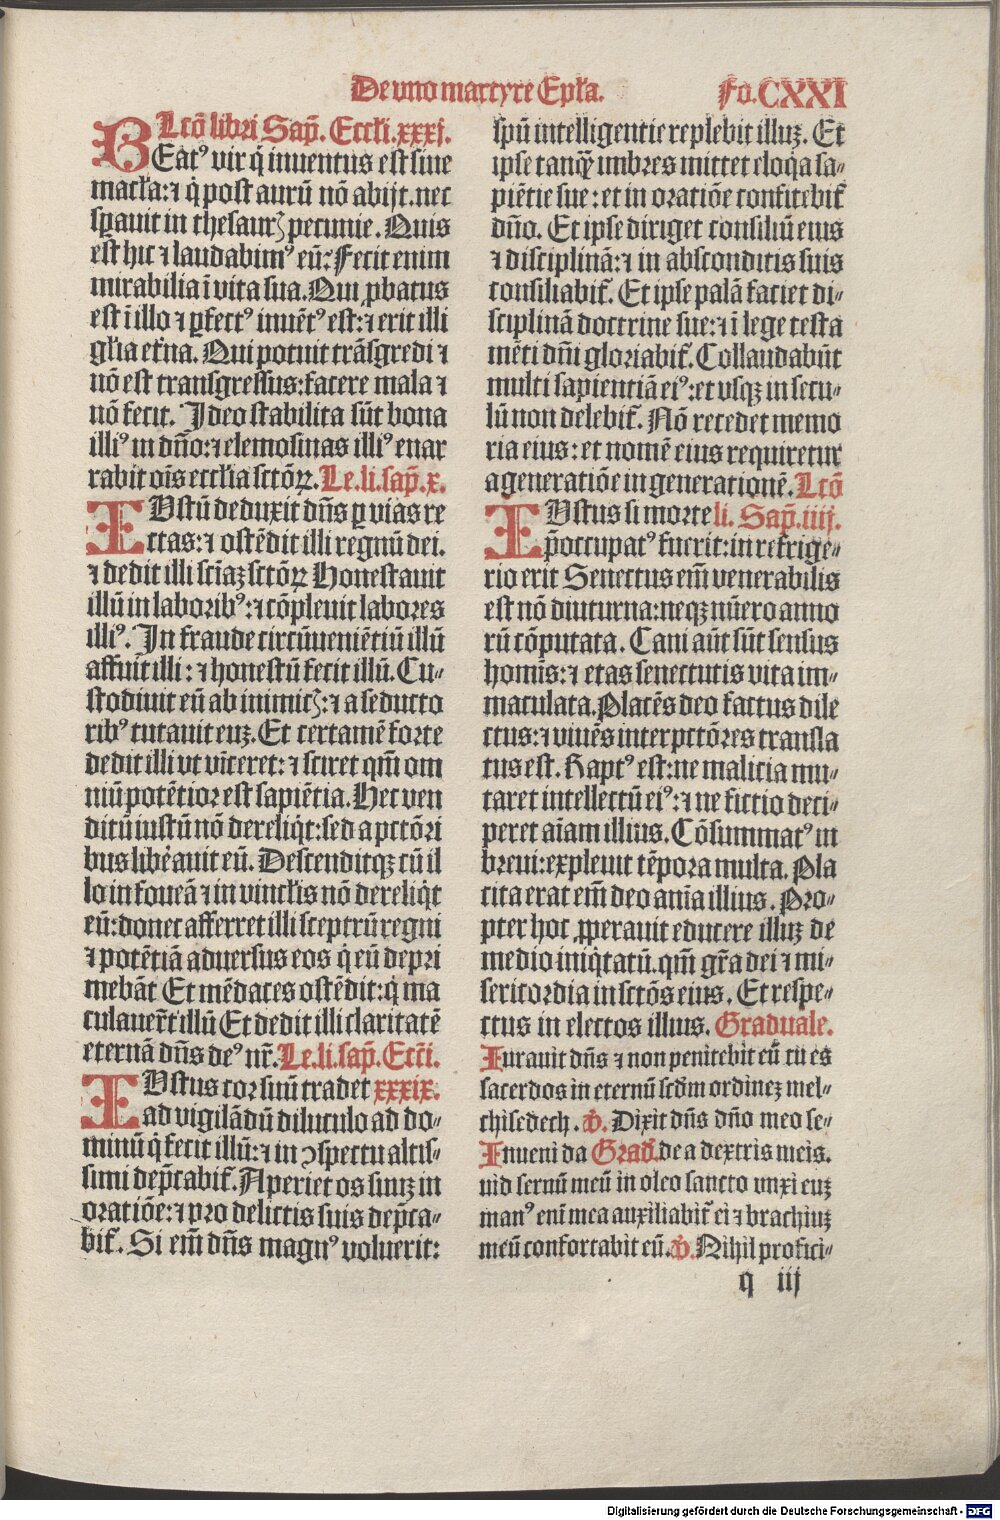 De vno martyre Epl̃a. Fo. CXXI
Lctõ libri Sap̃. Eccl̃i. xxxj.
BEatꝰ vir q̇ inuentus est sine
macl̃a: ⁊ q̇ post aurũ nõ abijt. nec
sꝑauit in thesaurꝭ pecunie. Quis
est hic ⁊ laudabimꝰ eũ? Fecit enim
mirabilia ĩ vita sua. Qui ꝓbatus
est ĩ illo ⁊ ꝑfectꝰ inuẽtꝰ est: ⁊ erit illi
gl̃ia et̃na. Qui potuit trãsgredi ⁊
nõ est transgressus: facere mala ⁊
nõ fecit. Ideo stabilita sũt bona
illiꝰ in dño: ⁊ elemosinas illiꝰ enar
rabit oĩs eccl̃ia sctõꝝ. Le. li. sap̃. x.
IVstũ deduxit dñs ꝑ vias re
ctas: ⁊ ostẽdit illi regnũ dei.
⁊ dedit illi sciãꝫ sctõꝝ Honestauit
illũ in laboribꝰ: ⁊ cõpleuit labores
illiꝰ. In fraude circũueniẽtiũ illũ
affuit illi: ⁊ honestũ fecit illũ. Cu⸗
stodiuit eũ ab inimicꝭ: ⁊ a seducto
ribꝰ tutauit euꝫ. Et certamẽ forte
dedit illi vt vĩceret: ⁊ sciret qm̃ om
niũ potẽtior est sapiẽtia. Hec ven
ditũ iustũ nõ dereliq̇t: sed a pctõri
bus liberauit eũ. Descenditqꝫ cũ il
lo in foueã ⁊ in vincl̃is nõ dereliq̇t
eũ: donec afferret illi sceptrũ regni
⁊ potẽtiã aduersus eos q̇ eũ depri
mebãt Et mẽdaces ostẽdit: q̇ ma
culauer̃t illũ Et dedit illi claritatẽ
eternã dñs deꝰ nr̃. Le. li. sap̃. Ecc̃i.
IVstus cor suũ tradet xxxix.
ad vigilãdũ diluculo ad do⸗
minũ q̇ fecit illũ: ⁊ in ɔspectu altis⸗
simi dep̃cabit̃. Aperiet os suuꝫ in
oratiõe: ⁊ pro delictis suis dep̃ca⸗
bit̃. Si em̃ dñs magnꝰ voluerit:
spũ intelligentie replebit illuꝫ. Et
ipse tanqꝫ̃ imbres mittet eloq̇a sa⸗
piẽtie sue: et in oratiõe confitebit̃
dño. Et ipse diriget consiliũ eius
⁊ disciplinã: ⁊ in absconditis suis
consiliabit̃. Et ipse palã faciet di⸗
sciplinã doctrine sue: ⁊ ĩ lege testa
mẽti dñi gloriabit̃. Collaudabũt
multi sapientiã eiꝰ: et vsqꝫ in secu⸗
lũ non delebit̃. Nõ recedet memo
ria eius: et nomẽ eius requiretur
a generatiõe in generationẽ. Lctõ
IVstus si morte li. Sap̃. iiij.
p̃occupatꝰ fuerit: in refrige⸗
rio erit Senectus em̃ venerabilis
est nõ diuturna: neqꝫ nũero anno
rũ cõputata. Cani aũt sũt sensus
homĩs: ⁊ etas senectutis vita im⸗
maculata. Placẽs deo factus dile
ctus: ⁊ viuẽs inter pctõres transla
tus est. Raptꝰ est: ne malicia mu⸗
taret intellectũ eiꝰ: ⁊ ne fictio deci⸗
peret aĩam illius. Cõsummatꝰ in
breui: expleuit tẽpora multa. Pla
cita erat em̃ deo anĩa illius. Pro⸗
pter hoc ꝓperauit educere illuꝫ de
medio iniq̇tatũ. qm̃ gr̃a dei ⁊ mi⸗
sericordia in sctõs eius. Et respe⸗
ctus in electos illius. Graduale.
Iurauit dñs ⁊ non penitebit eũ tu es
sacerdos in eternũ scd̃m ordineꝫ mel⸗
chisedech. ℣. Dixit dñs dño meo se⸗
Inueni da Grad̃. de a dextris meis.
uid seruũ meũ in oleo sancto vnxi euꝫ
manꝰ eni mea auxiliabit̃ ei ⁊ brachiuꝫ
meũ confortabit eũ. ℣. Nihil profici⸗
q iij
Digitalisierung gefördert durch die Deutsche Forschungsgemeinschaft - DFG